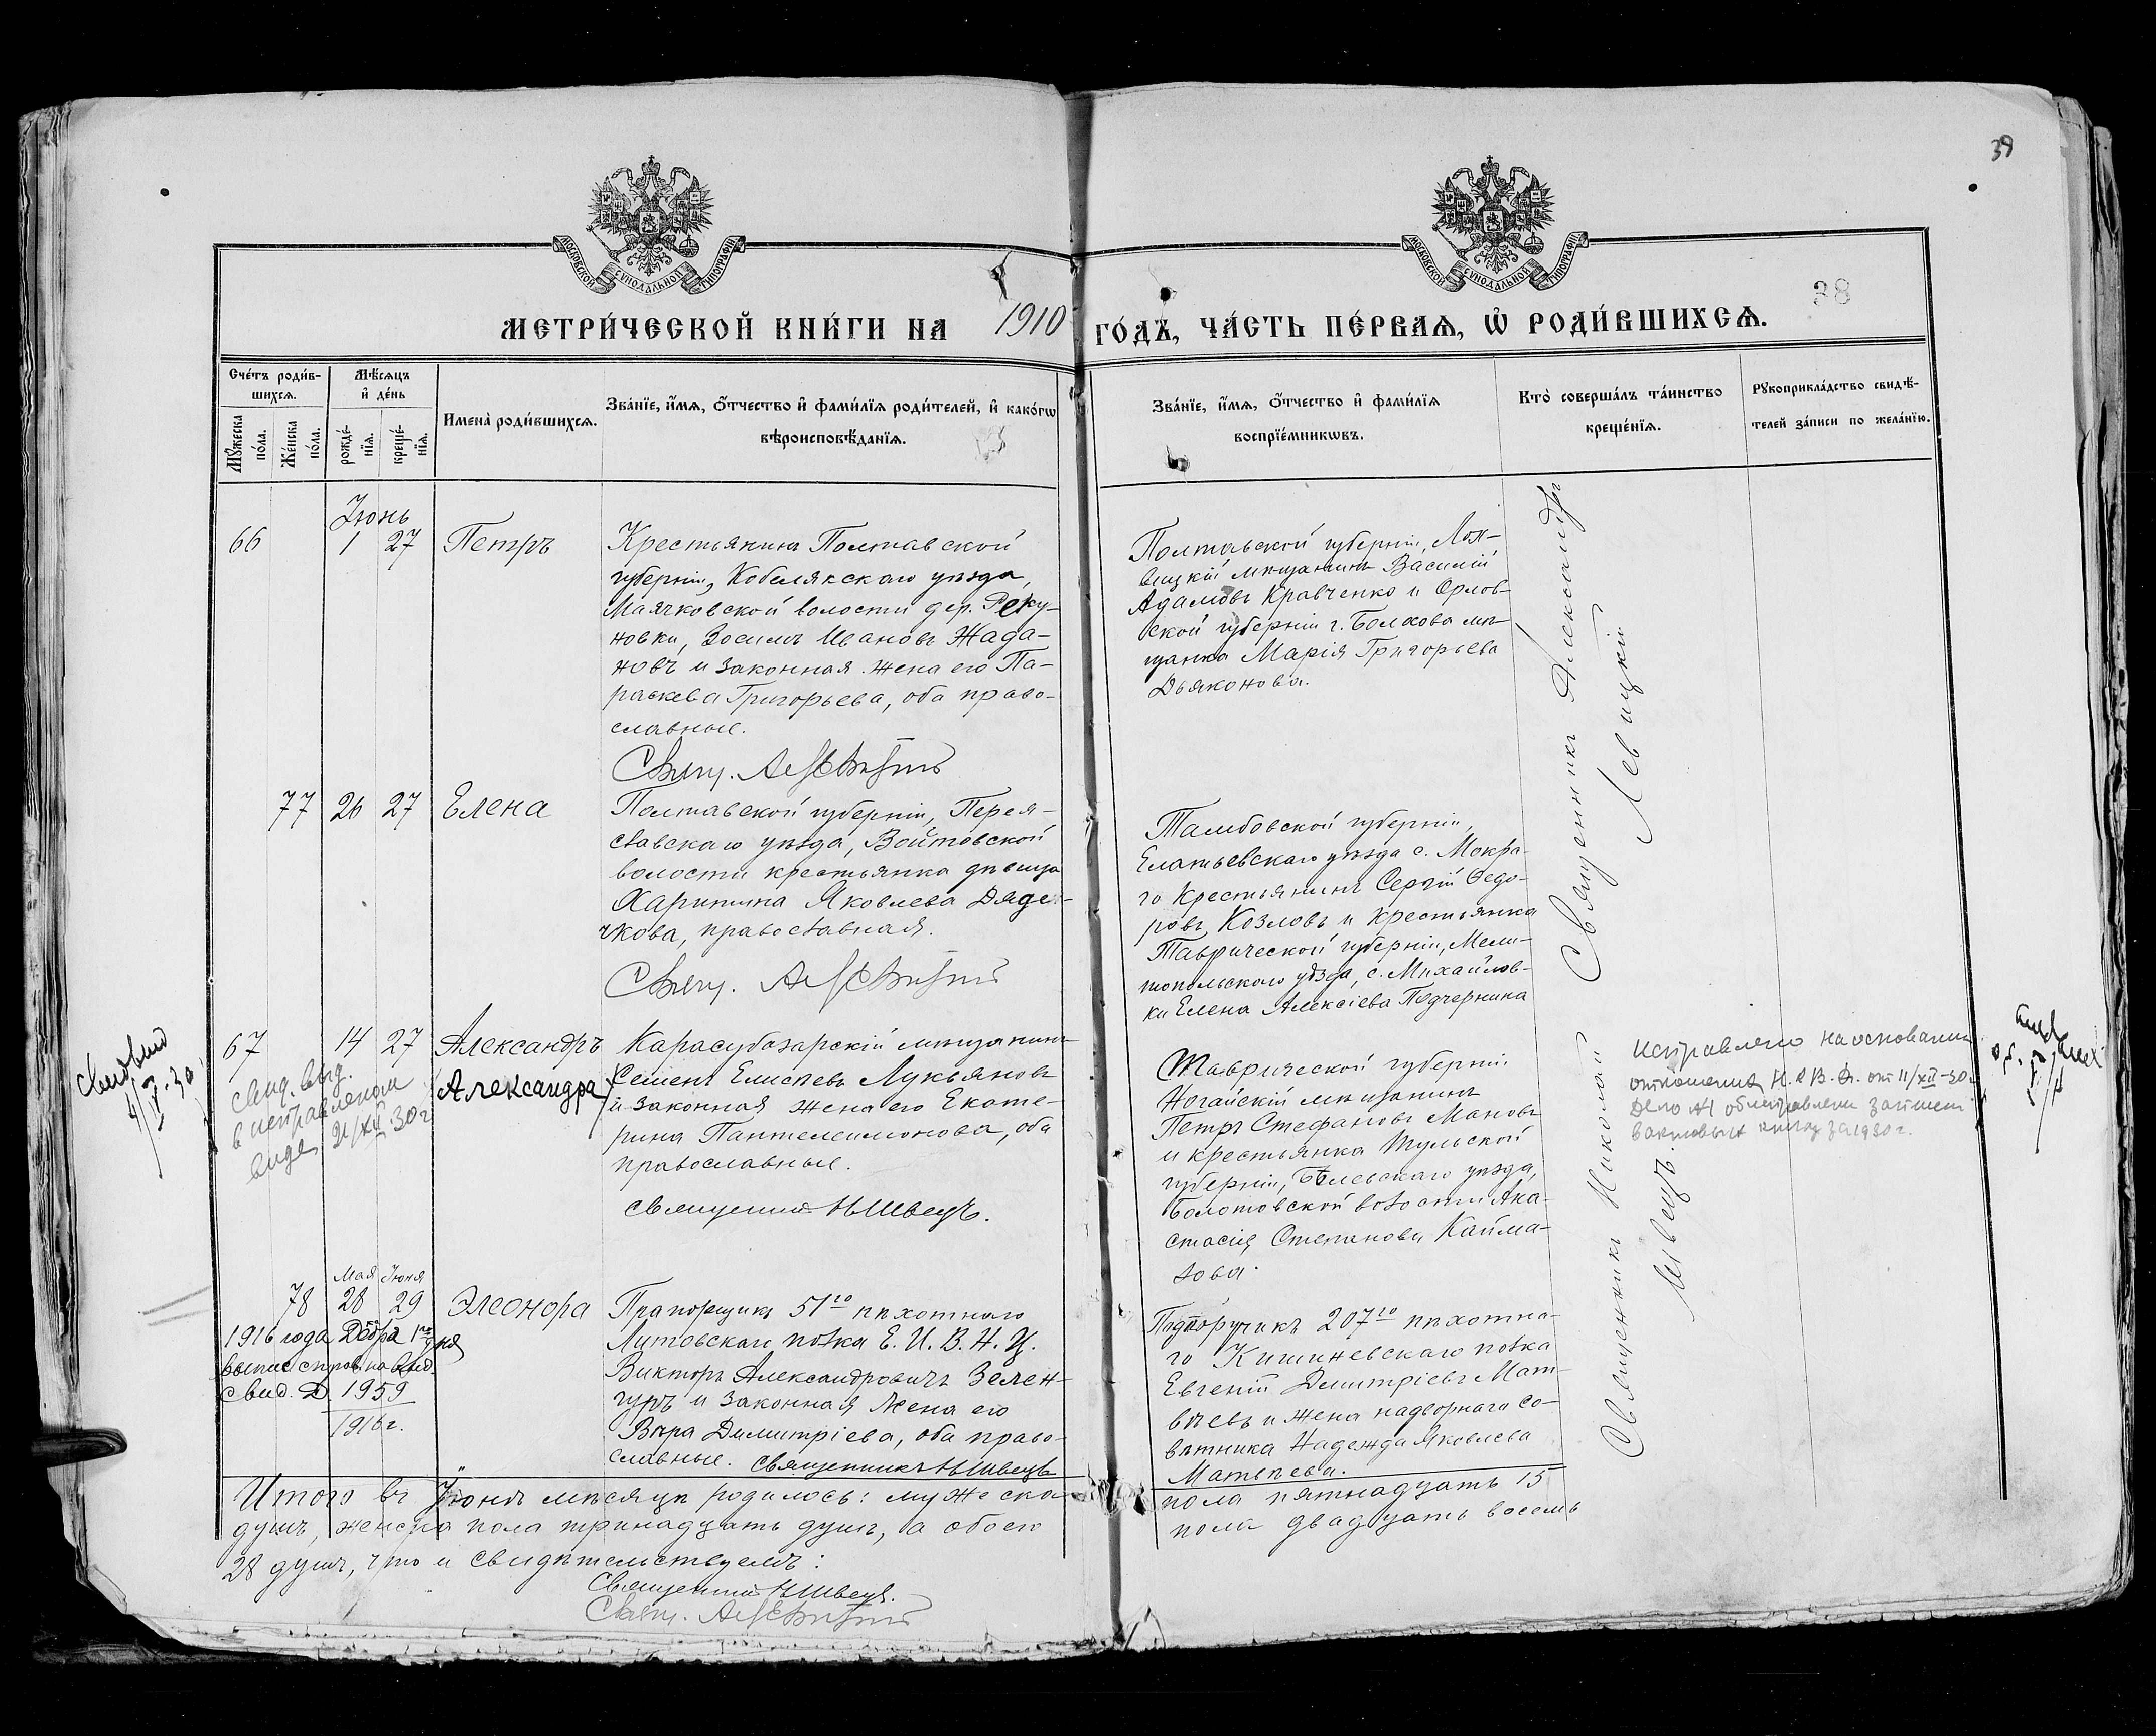 39
МОСКОВСКОЙ СУНОДАЛЬНОЙ ТИПОГРАФІИ
МОСКОВСКОЙ СУНОДАЛЬНОЙ ТИПОГРАФІИ
38
МЕТРИ́ЧЕСКОЙ КНИ́ГИ НА 1910 ГО́ДЪ, ЧА́СТЬ ПЕ́РВАѦ, Ѡ РОДИ́ВШИХСѦ.
Сче́тъ роди́в-
шихсѧ.
Мꙋжеска по́ла.
Же́нска по́ла.
Мѣ́сѧцъ и де́нь
рожде́-
нїѧ.
креще́-
нїѧ.
Имена̀ роди́вшихсѧ.
Зва́нїе, и́мѧ, о́тчество и фами́лїѧ роди́телей, и како́гѡ
вѣроисповѣ́данїѧ.
Зва́нїе, и́мѧ, о́тчество и фами́лїѧ
воспрїе́мникѡвъ.
Кто̀ соверша́лъ та́инство
креще́нїѧ.
Рꙋкоприкла́дство свидѣ́-
телей за́писи по жела́нїю.
Іюнь
66 1 27 Петръ
Крестьянинъ Полтавской
губерніи, Кобелякскаго уѣзда,
Маячковской волости дер. Реку-
новки, Зосимъ Ивановъ Жада-
новъ и законная жена его Па-
раскева Григорьева, оба право-
славные.
Свящ. А Левицкій
Полтавской губерніи, Лох-
вицкій мѣщанинъ Василій
Адамовъ Кравченко и Орлов-
ской губерніи г. Болхова мѣ-
щанка Марія Григорьева
Дьяконова.
Священникъ Александръ
Левицкій
77 26 27 Елена
Полтавской губерніи, Перея-
славскаго уѣзда, Войтовской
волости крестьянка дѣвица
Харитина Яковлева Дядеч-
чкова, православная.
Свящ. А Левицкій
Тамбовской губерніи,
Елатьевскаго уѣзда с. Мокра-
го Крестьянинъ Сергій Ѳедо-
ровъ Козловъ и крестьянка
Таврической губерніи, Мели-
топольскаго уѣзда, с. Михайлов-
ки Елена Алексіева Подчерника
67 14 27 Александръ
Александра
свид. выд.
в исправленом
виде 21/XII 30 г
Карасубазарскій мѣщанинъ
Семенъ Елисѣевъ Лукьяновъ
и законная жена его Екате-
рина Пантелеимонова, оба
православные.
Священникъ Н Швецъ.
Таврической губерніи
Ногайскій мѣщанинъ
Петръ Стефановъ Мановъ
и крестьянка Тульской
губерніи, Бѣлевскаго уѣзда,
Болотовской волости Ана-
стасія Степанова Кайма-
зова.
Священникъ Николай
Швецъ.
Исправлено на основании
отношения Н.К.В.Д. от 11/XII-30 г.
Дело № 1 об исправлении записей
в актовых книгах за 1930 г.
Мая Іюня
78 28 29 Элеонора
1916 года Декбра 1го дня
выпис справ. на выд.
свид. № 1959
1916 г.
Прапорщикъ 51го пѣхотнаго
Литовскаго полка Е. И. В. Н. Ц.
Викторъ Александровичъ Зелен-
гуръ и законная жена его
Вѣра Димитріева, оба право-
славные. Священникъ Н Швецъ
Подпоручикъ 207го пѣхотна-
го Кишиневскаго полка
Евгеній Димитріевъ Мат-
вѣевъ и жена надворнаго со-
вѣтника Надежда Яковлева
Матвѣева.
Итого въ Іюнѣ мѣсяцѣ родилось: мужеска пола пятнадцать 15
душъ, женска пола тринадцать душъ, а обоего пола двадцать восемь
28 душъ, что и свидѣтельствуемъ:
Священникъ Н Швецъ.
Свящ. А Левицкій